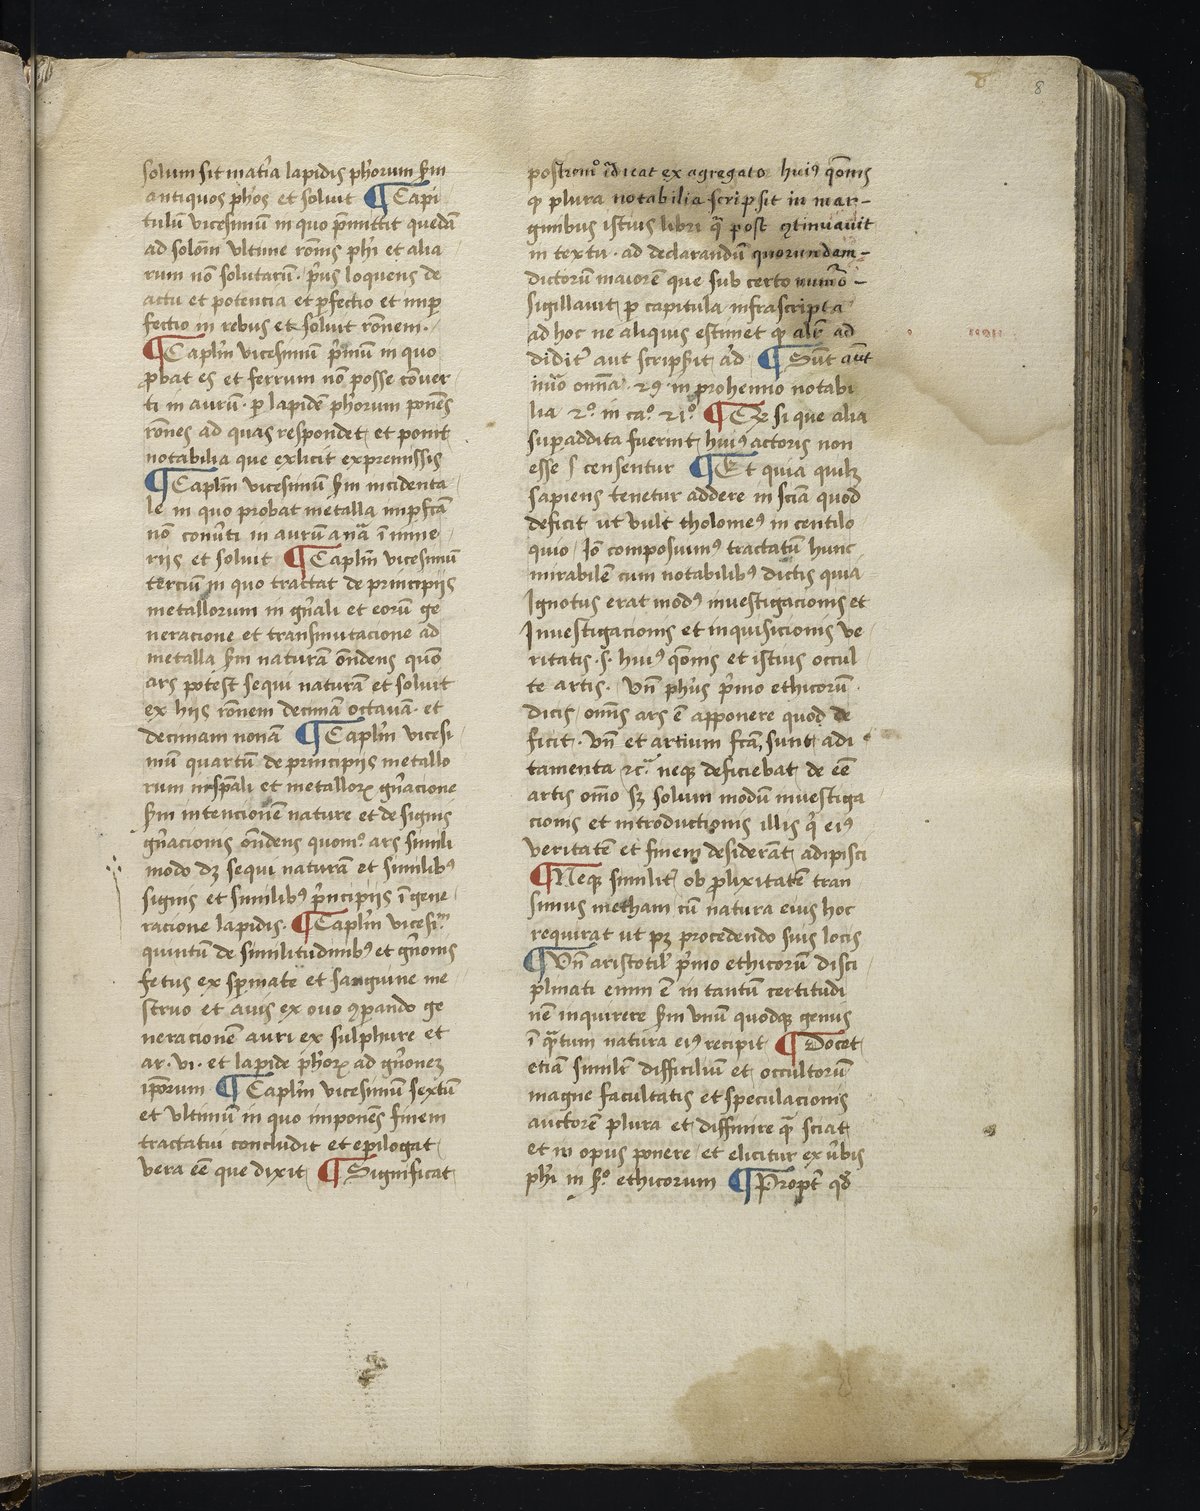 8
solum sit mat͛ia lapidis ph͛orum sm̄
antiquos ph͛os et soluit ¶ Capi
tulū vicesimū in quo p͛mittit quedā
ad solōīn vltime rōnis ph͛i et alia
rum nō solutarū · p͛us loquens de
actu et potencia et ꝑfectio et imꝑ
fectio in rebus et soluit rōnem ·
¶ Capl̄m vicesimū p͛mū in quo
ꝓbat es et ferrum nō posse cōuer
ti in aurū · ꝑ lapidē ph͛orum ponēs
rōnes ad quas respondet et ponit
notabilia que exlicit ex premissis
¶ Capl̄m vicesimū sm̄ incidenta
le in quo probat metalla imꝑfcā
nō conu͛ti in aurū a nā ī mine
riis et soluit ¶ Capl̄m vicesimū
terciū in quo tractat de principijs
metallorum in gn͛ali et eorū ge
neracione et transmutacione ad
metalla sm̄ naturā ōndens quō
ars potest sequi naturā et soluit
ex hijs rōnem decimā octauā · et
decimam nonā ¶ Capl̄m vicesi
mū quartū de principijs metallo
rum in sp̄ali et metalloꝝ gn͛acione
sm̄ intencionē nature et de signis
gn͛acionis ōndens quomº ars simili
modo dꝫ sequi naturā et similibꝰ
signis et similibꝰ p͛ncipijs ī gene
racione lapidis · ¶ Capl̄m vicesiᵐ
quintū de similitudinibꝰ et gn͛onis
fetus ex spermate et sanguine me
struo et auis ex ouo ꝯparando ge
neracionē auri ex sulphure et
ar · vi · et lapide ph͛oꝝ ad gn͛onez
ip̄orum ¶ Capl̄m vicesimū sextū
et vltimū in quo imponēs finem
tractatui concludit et epilogat
vera eē que dixit ¶ Significat
postremº īdicat ex agregato huiꝰ qōnis
ꝙ plura notabilia scripsit in mar-
ginibus istius libri q̄ post ꝯtinuauit
in textu · ad declarandū quorundam-
dictorū maiorē que sub certo num͛o-
sigillauit ꝑ capitula infrascripta
ad hoc ne aliquis estimet ꝙ alr̄ ad
didit͛ aut scripsit ad ¶ Sūt aūt
in omnia · 29 · in prohemio notabi
lia 2º in caº 21º ¶ Et si que alia
suꝑaddita fuerint huiꝰ actoris non
esse censentur ¶ Et quia quilꝫ
sapiens tenetur addere in sciā quod
deficit ut vult tholomeꝰ in centilo
quio · Iō composuimꝰ tractatū hunc
mirabilē cum notabilibꝰ dictis quia
Ignotus erat modꝰ inuestigacionis et
Inuestigacionis et inquisicionis ve
ritatis · s · huiꝰ qōnis et istius occul
te artis · Vn̄ ph͛us p͛mo ethicorū
dicis omīs ars ē apponere quod de
ficit · Vn̄ et artium fcā sunt adi
tamenta ⁊cᵃ neqꝫ deficiebat de eē
artis omō sꝫ solum modū inuestiga
cionis et introductionis illis q͛ eiꝰ
veritatē et finem desiderāt adipisci
¶ Neqꝫ similit͛ ob ꝓlixitatē tran
simus metham cū natura eius hoc
requirat ut pꝫ procedendo suis locis
¶ Vn̄ aristotil͛ p͛mo ethicorū disci
plinati enim ē in tantū certitudi
nē inquirere sm̄ vnū quodqꝫ genus
ī q̄tum natura eiꝰ recipit ¶ Docet
etiā simil͛r difficiliū et occultorū
magne facultatis et speculacionis
auctorē plura et diffinire q̄ sciat
et in opus ponere et elicitur ex v͛bis
ph͛i in sº ethicorum ¶ Propt͛ qd̄